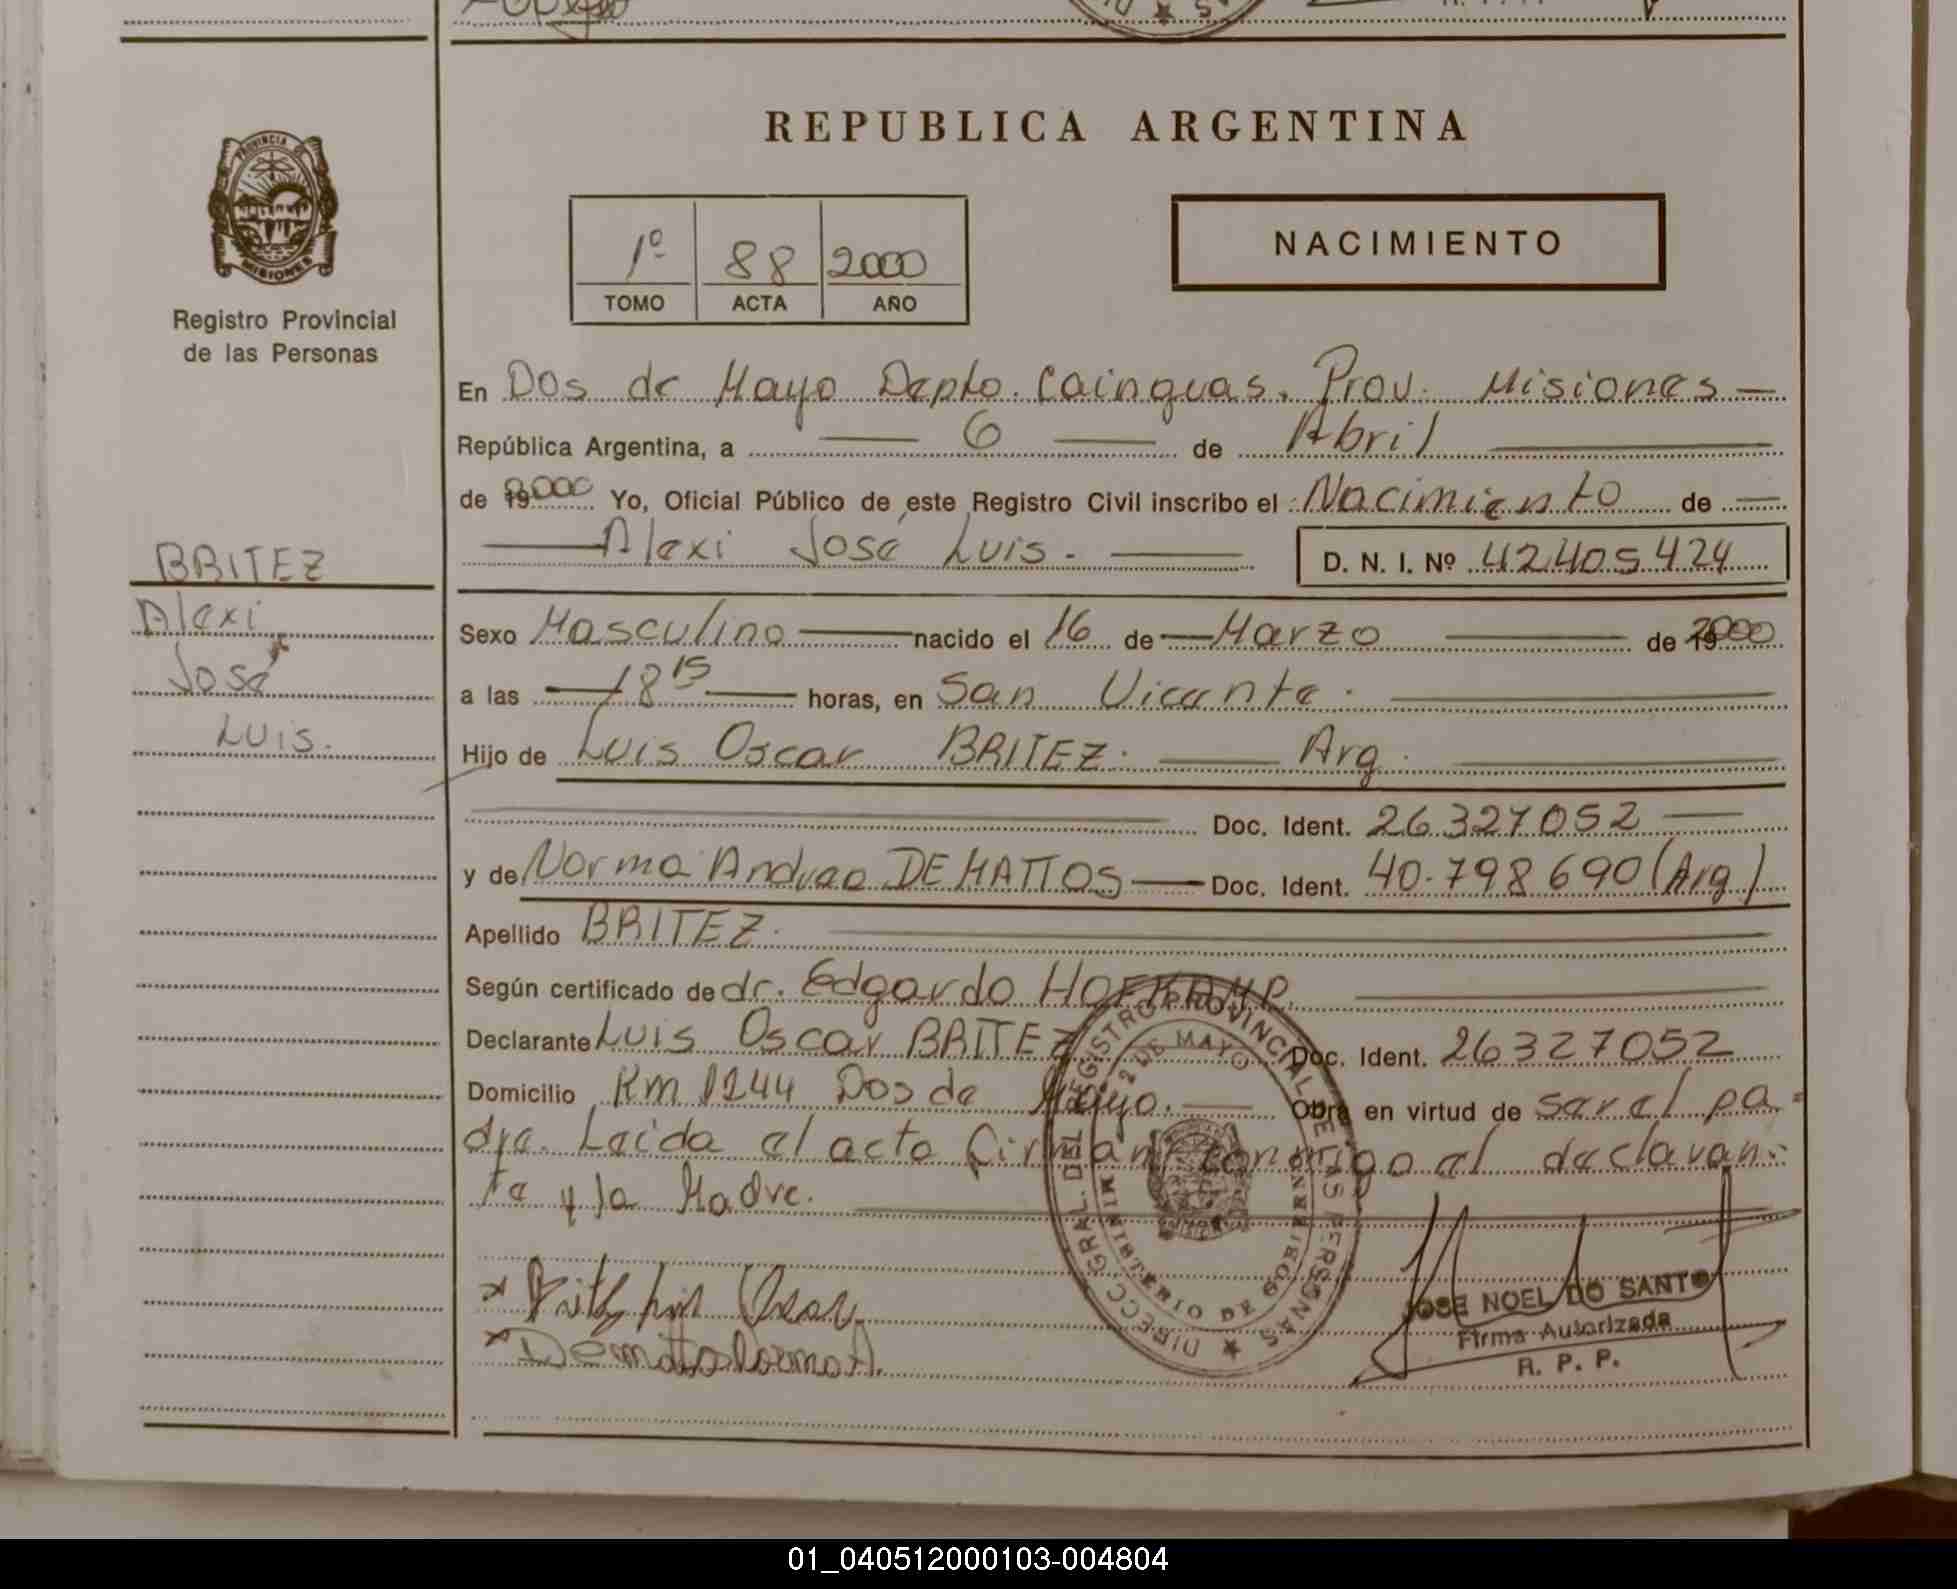 REPUBLICA ARGENTINA
PROVINCIA DE
MISIONES
Registro Provincial
de las Personas
1º 88 2000
TOMO ACTA AÑO
NACIMIENTO
En Dos de Mayo Depto. Cainguas. Prov. Misiones
República Argentina, a 6 de Abril
de 2000 Yo, Oficial Público de este Registro Civil inscribo el Nacimiento de
Alexi José Luis.
D. N. I. Nº 42405424
BRITEZ
Alexi
José
Luis.
Sexo Masculino nacido el 16 de Marzo de 2000
a las 18 15 horas, en San Vicente.
Hijo de Luis Oscar BRITEZ. Arg.
Doc. Ident. 26327052
y de Norma Andrea DE MATTOS Doc. Ident. 40.798690 (Arg)
Apellido BRITEZ.
Según certificado de dr. Edgardo HOFKAMP.
Declarante Luis Oscar BRITEZ Doc. Ident. 26327052
Domicilio Km 1244 Dos de Mayo. Obra en virtud de ser el pa-
dre. Leida el acta firman conmigo el declaran-
te y la Madre.
DIRECC. GRAL. DEL REGISTRO PROVINCIAL DE LAS PERSONAS
2 DE MAYO
MINISTERIO DE GOBIERNO
Britez Luis Oscar
Dematto Norma A.
JOSE NOEL DO SANTO
Firma Autorizada
R. P. P.
01_040512000103-004804